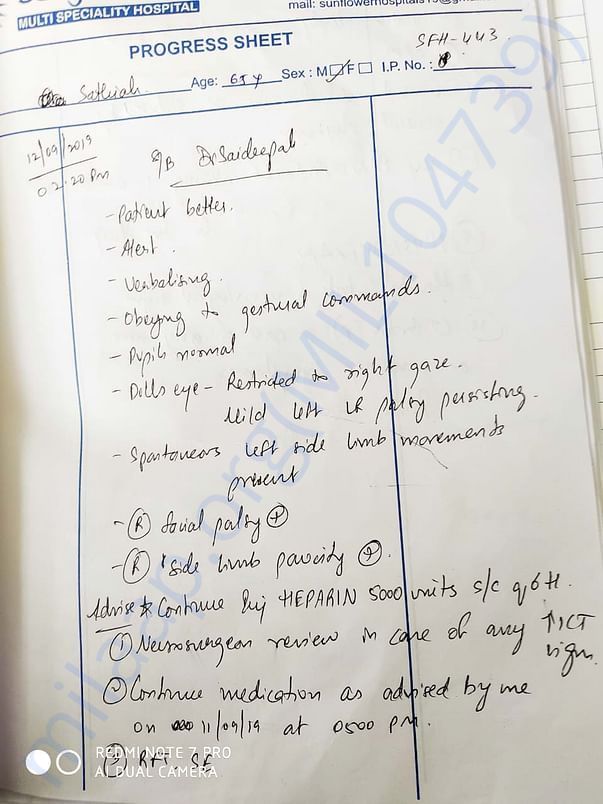 MULTI SPECIALITY HOSPITAL
mail: sunflowerhospitals
PROGRESS SHEET
SFH-443.
Sathiah. Age: 65 y Sex : M F I.P. No. :
12/09/2019
02.20 PM
S/B Dr Saideepak
- Patient better.
- Alert.
- Verbalising.
- Obeying to gestural commands.
- Pupils normal
- Dolls eye - Restricted to right gaze.
Mild left palsy persisting.
- Spontaneous left side limb movements
present
- (R) facial palsy (+)
- (R) side limb paucity (+).
Advise * Continue Inj HEPARIN 5000 units s/c q 6 H.
(1) Neurosurgeon review in case of any ↑ICT
signs.
(2) Continue medication as advised by me
on 11/09/19 at 0500 PM.
(3) RFT, SE
REDMI NOTE 7 PRO
AI DUAL CAMERA
milaap.org(MIL104739)